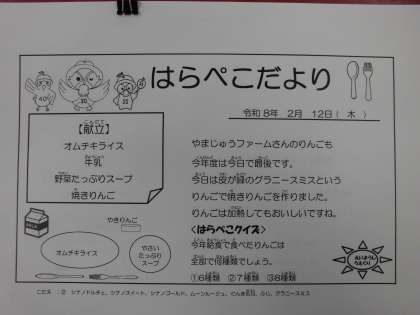 はらぺこだより
令和8年 2月 12日(木)
【献立】
オムチキライス
牛乳
野菜たっぷりスープ
焼きりんご
やまじゅうファームさんのりんごも
今年度は今日で最後です。
今日は皮が緑のグラニースミスという
りんごで焼きりんごを作りました。
りんごは加熱してもおいしいですね。
<はらぺこクイズ>
今年給食で食べたりんごは
全部で何種類でしょう。
①6種類 ②7種類 ③8種類
やきりんご
オムチキライス
やさい
たっぷり
スープ
こたえ:② シナノドルチェ、シナノスイート、シナノゴールド、ムーンルージュ、ぐんま名月、ふじ、グラニースミス